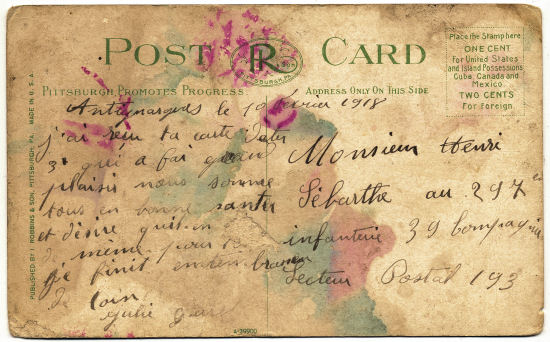 POST CARD
PR
PITTSBURGH, PA.
Place the Stamp here
ONE CENT
for United States
and Island Possessions
Cuba, Canada and
Mexico
TWO CENTS
For foreign.
PITTSBURGH PROMOTES PROGRESS
ADDRESS ONLY ON THIS SIDE
PUBLISHED BY I. ROBBINS & SON, PITTSBURGH, PA. MADE IN U. S. A.
le 10 1918
j'ai reçu ta carte
3 qui a fai
plaisir nous somme
tous en bonne santer
et désire
de même pour
je finit
de loin
Monsieur Henri
Sébarthe au 297e
infanterie 39 Compagnie
Secteur Postal 193
A-39900